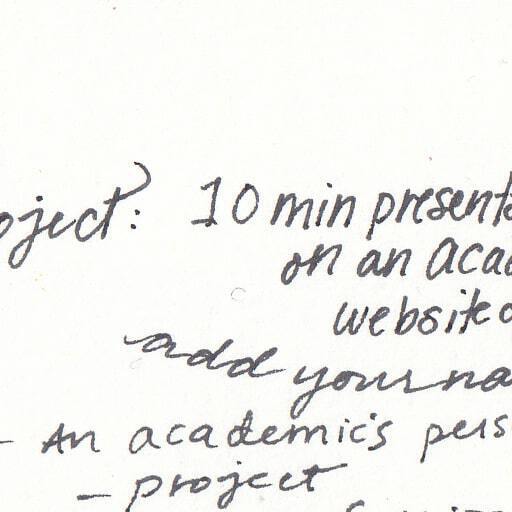 oject: 10 min presenta
on an acad
website o
add your na
- An academic's pers
- project